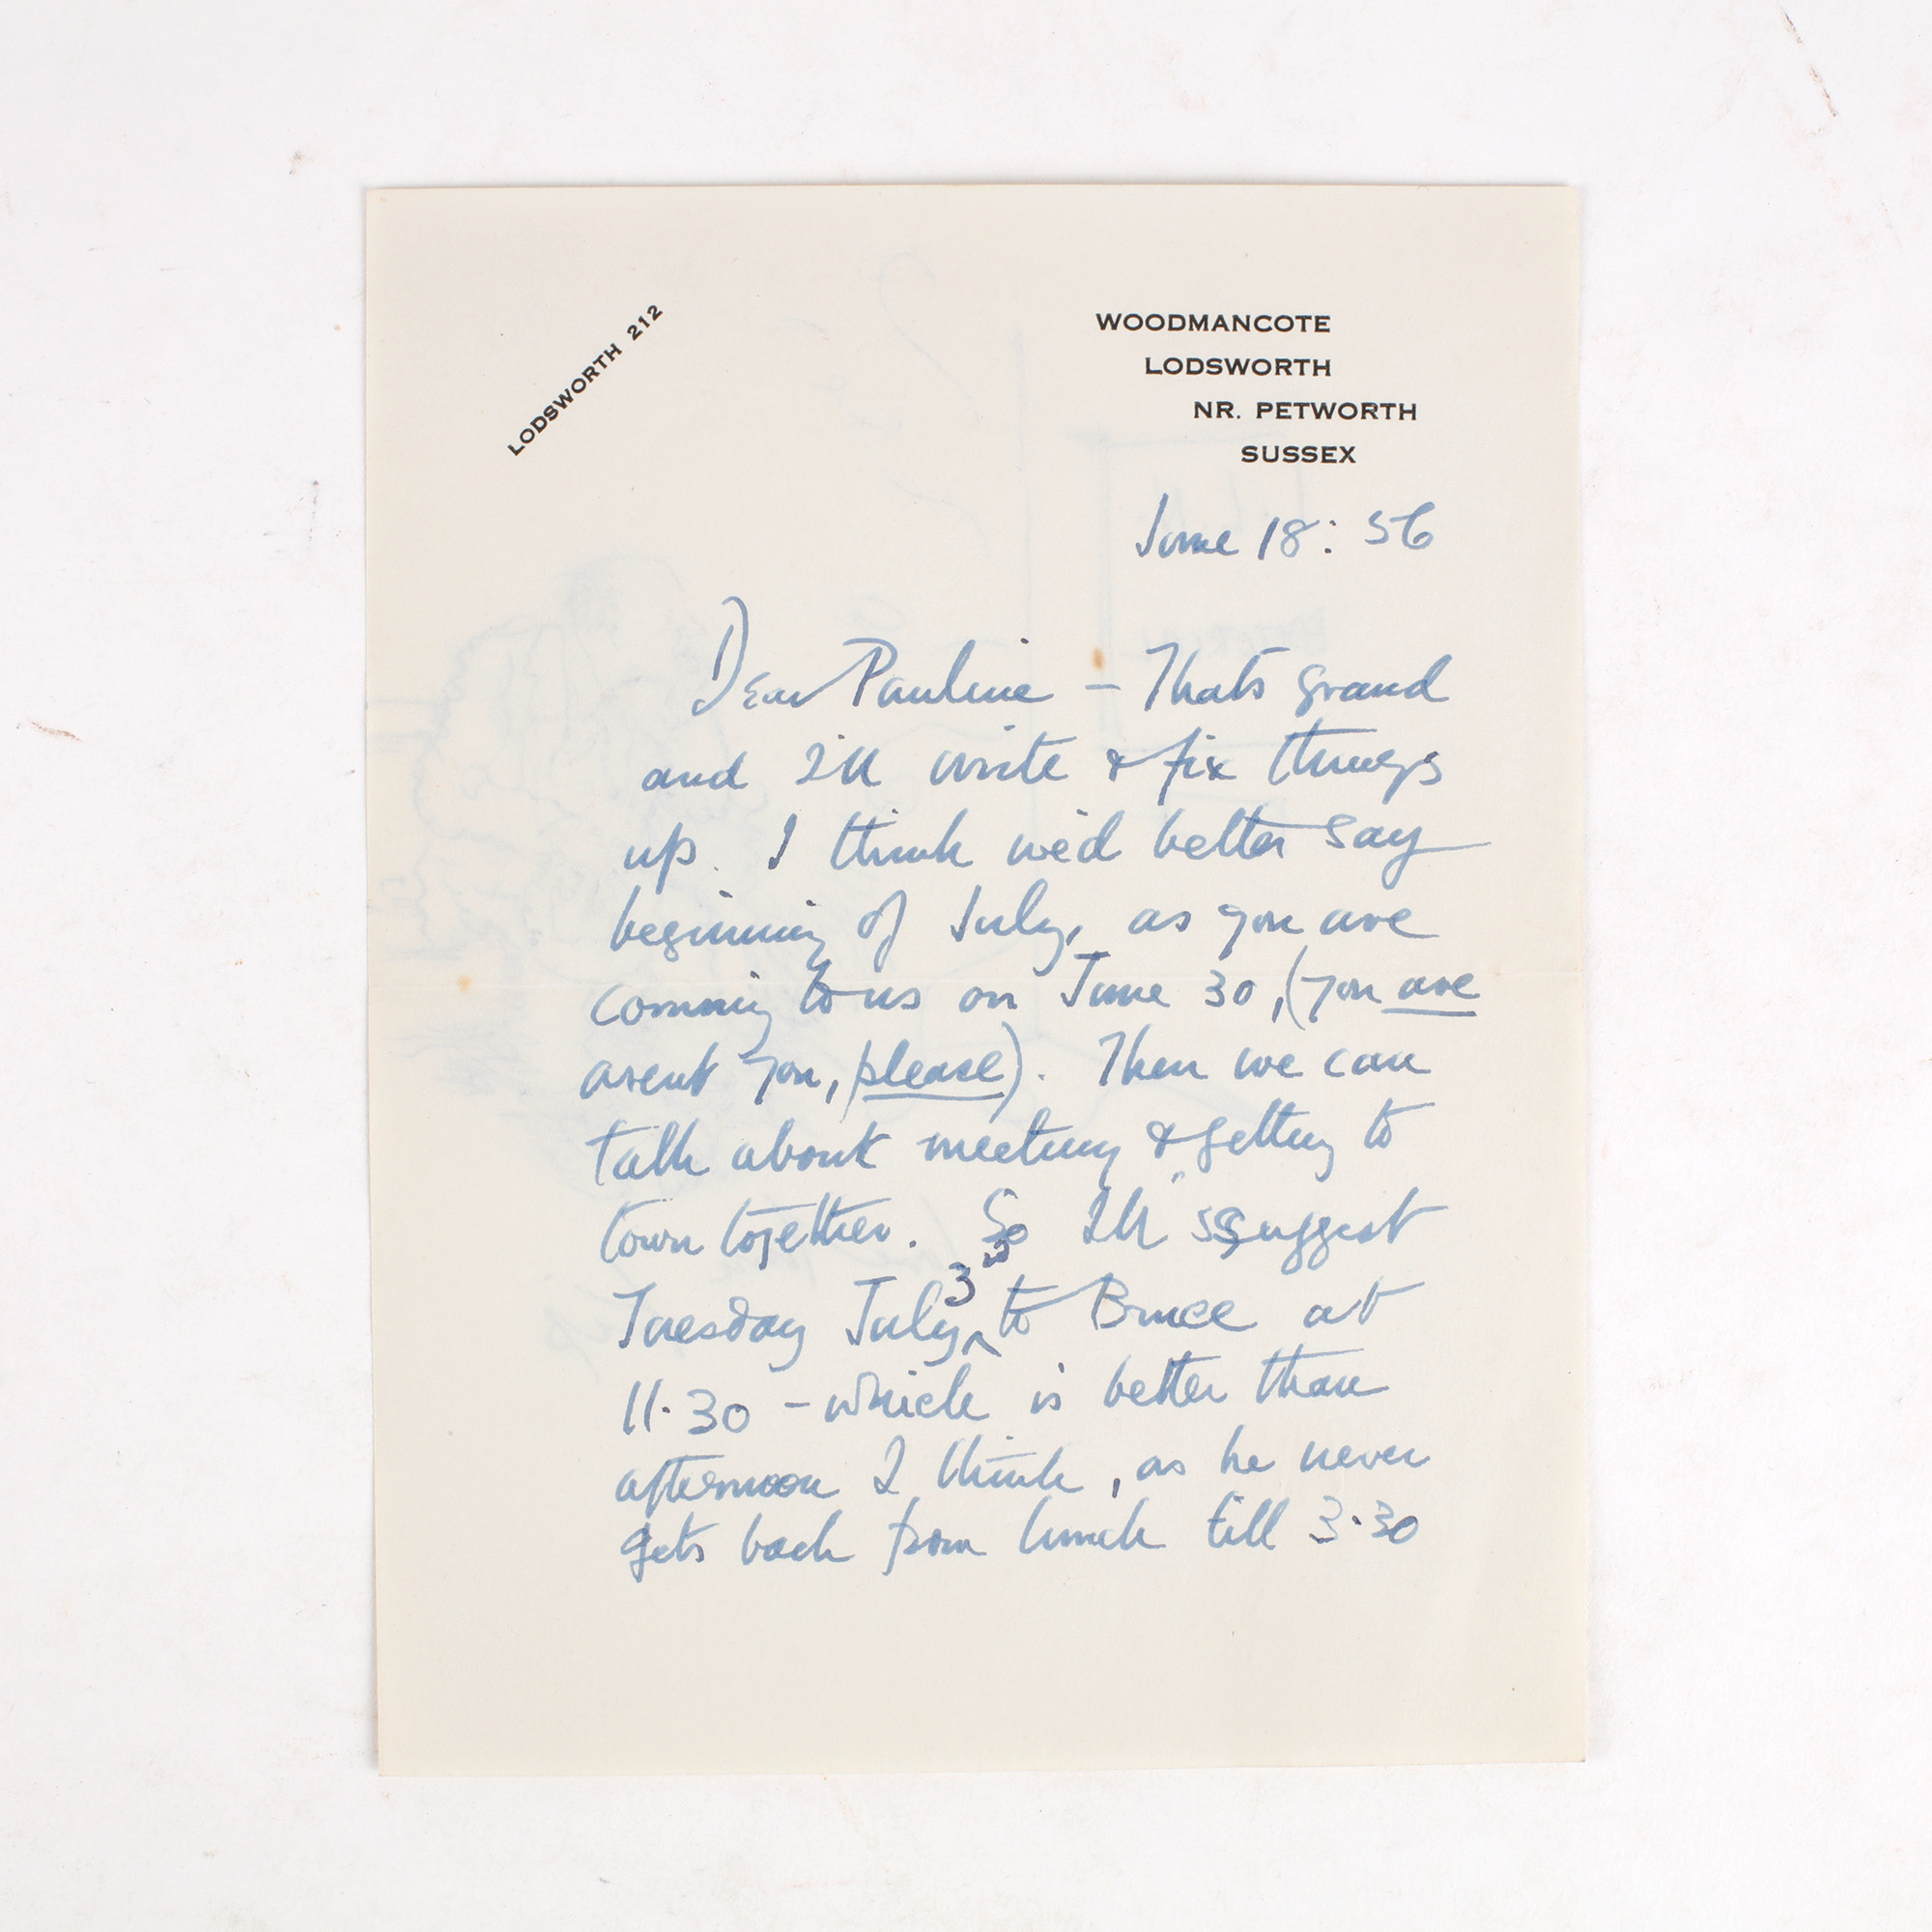 LODSWORTH 212
WOODMANCOTE
LODSWORTH
NR. PETWORTH
SUSSEX
June 18: 56
Dear Pauline – Thats grand
and I'll write & fix things
up. I think we'd better say
beginning of July, as you are
coming to us on June 30, (you are
arent you, please). Then we can
talk about meeting & getting to
town together. So I'll suggest
Tuesday July 3rd to Bruce at
11.30 – which is better than
afternoon I think, as he never
gets back from lunch till 3.30